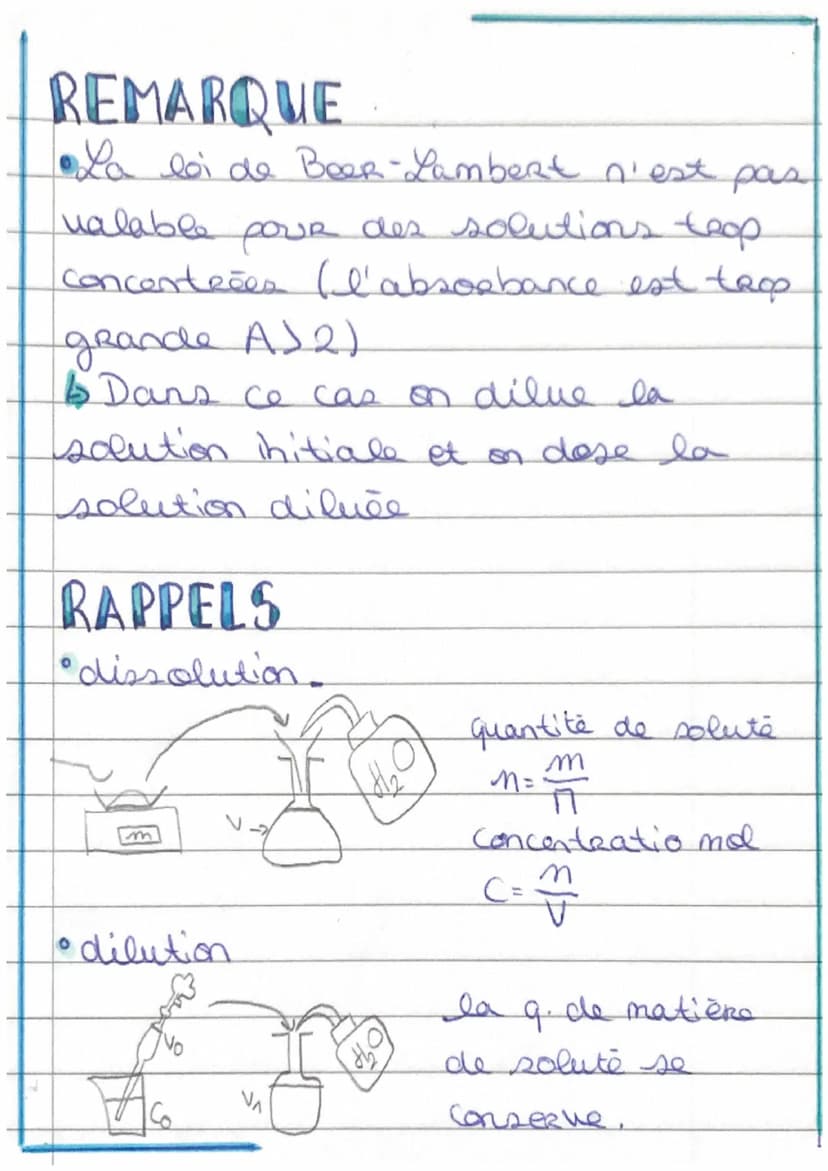 REMARQUE
• La loi de Beer-Lambert n'est pas
valable pour des solutions trop
concentrées (l'absorbance est trop
grande A>2)
↳ Dans ce cas on dilue la
solution initiale et on dose la
solution diluée
RAPPELS
• dissolution.
quantité de soluté
n = m/M
H2O
m
V →
concentratio mol
C = n/V
• dilution
la q. de matière
V0
H2O
de soluté se
C0
V1
conserve.